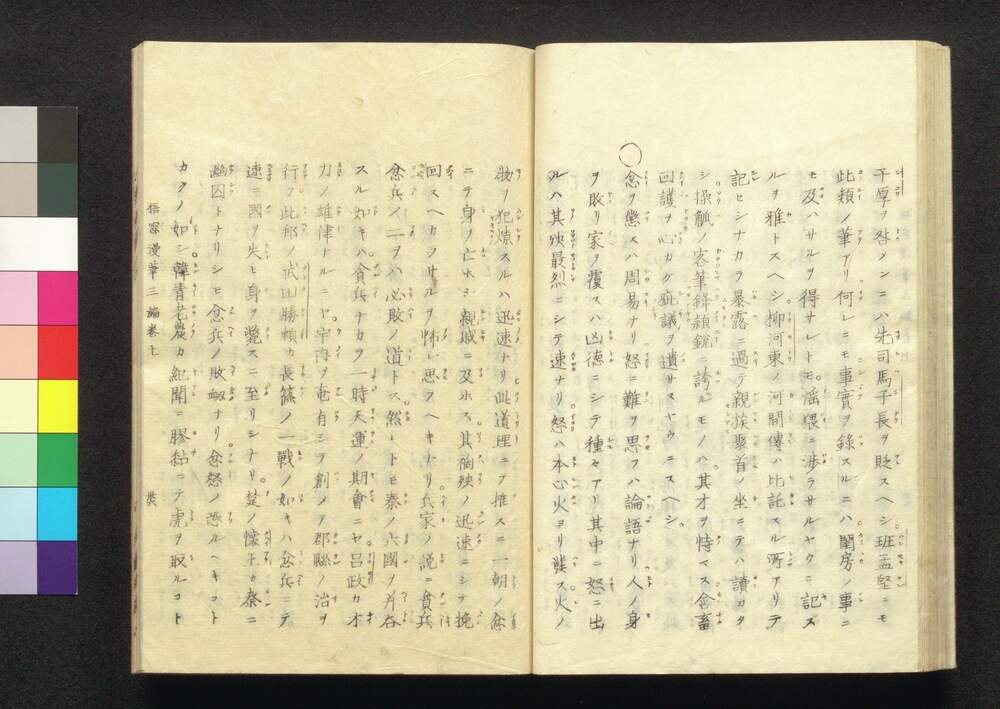 平原ヲ咎メンニハ先司馬子長ヲ貶スヘシ班孟堅ニモ
此類ノ筆アリ何レニモ事實ヲ録スルニハ閨房ノ事ニ
モ及ハサルヲ得サレトモ滛猥ニ渉ラサルヤウニ記ス
ルヲ雅トスヘシ柳河東ノ河間傳ハ比託スル所アリテ
記セシナカラ暴露ニ過テ親族聚首ノ坐ニテハ讀カタ
シ操觚ノ客筆鋒頴鋭ニ誇ルモノハ其才ヲ恃マス含畜
回護ヲ心カケ疵議ヲ遺サヌヤウニスヘシ
〇
忿ヲ懲スハ周易ナリ怒ニ難ヲ思フハ論語ナリ人ノ身
ヲ敗リ家ヲ覆スハ凶德ニシテ種々アリ其中ニ怒ニ出
ルハ其殃最烈ニシテ速ナリ怒ハ本心火ヨリ發ス火ノ
物ヲ犯燎スルハ迅速ナリ此道理ニテ推スニ一朝ノ忿
ニテ身ノ亡ホシ親戚ニ及ホス其胸殃ノ迅速ニシテ挽
回スヘカラサルヲ怖レ思フヘキナリ兵家ノ説ニ貪兵
忿兵ノ二ヲハ必敗ノ道トス然レトモ秦ノ六國ヲ并吞
スル如キハ貪兵ナカラ一時天運ノ期會ニヤ呂政カ才
力ノ雄偉ナルニヤ宇内ヲ奄有シ創メテ郡縣ノ治ヲ
行フ此邦ノ武田勝頼カ長篠ノ一戰ノ如キハ忿兵ニテ
速ニ國ヲ失ヒ身ヲ斃スニ至リシナリ楚ノ懷王カ秦ニ
幽囚トナリシモ忿兵ノ敗衂ナリ忿怒ノ恐ルヘキコト
カクノ如シ韓青老農カ紀聞ニ膠黏ニテ虎ヲ取ルコト
梧窓漫筆三編巻上